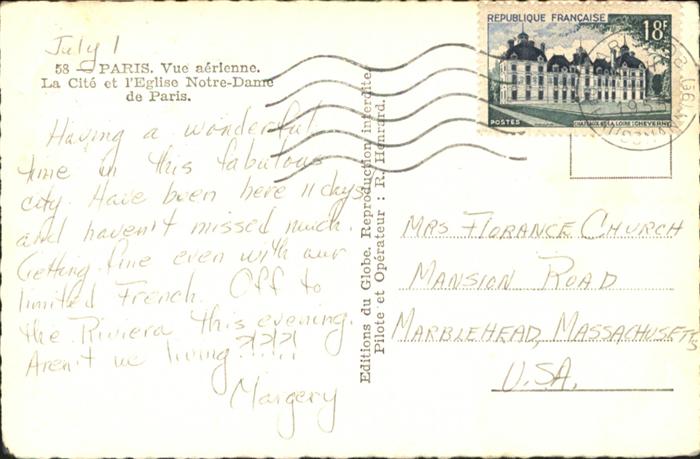 July 1
58 — PARIS. Vue aérienne.
La Cité et l'Eglise Notre-Dame
de Paris.
Having a wonderful
time in this fabulous
city. Have been here 11 days
and haven't missed much.
Getting fine even with our
limited French. Off to
the Riviera this evening.
Aren't we living ?!?!?!
Margery
Editions du Globe. Reproduction interdite.
Pilote et Opérateur : R. Henrard.
REPUBLIQUE FRANÇAISE
18F
POSTES
CHATEAUX DE LA LOIRE : CHEVERNY
MRS FLORANCE CHURCH
MANSION ROAD
MARBLEHEAD, MASSACHUSETTS
U.S.A.